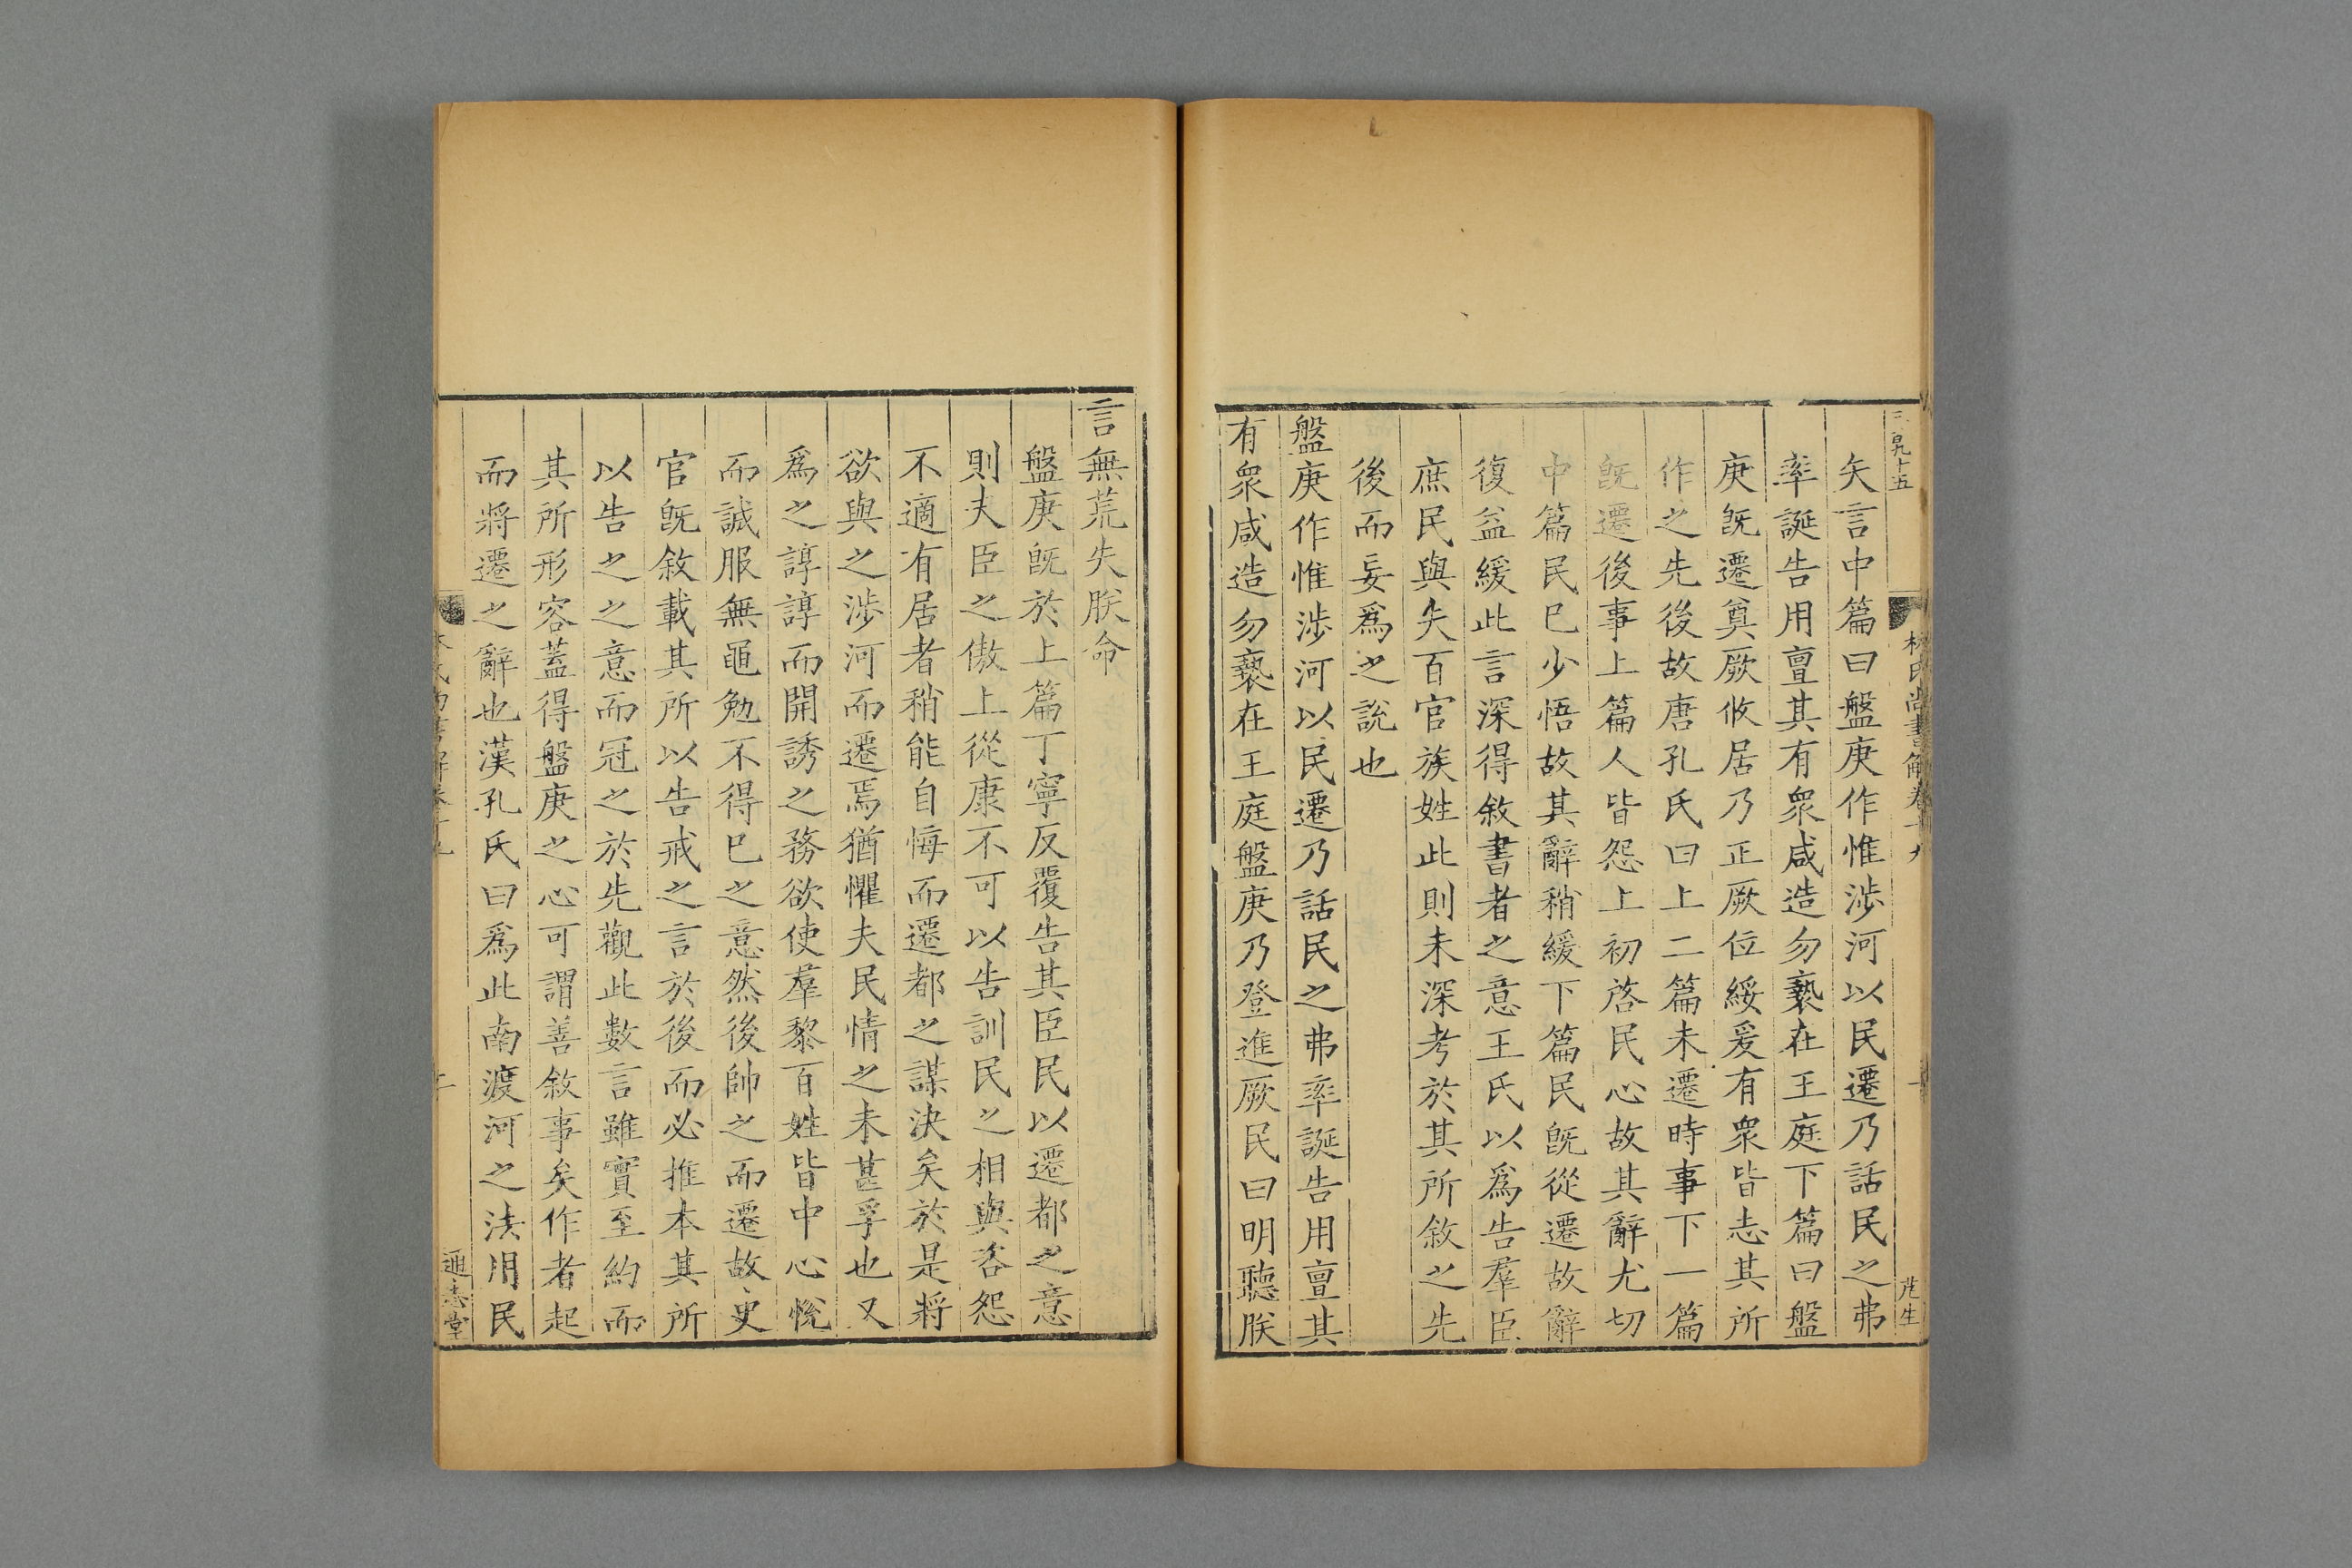 三百九十五
林氏尚書解卷十九
芘生
矢言中篇曰盤庚作惟涉河以民遷乃話民之弗
率誕告用亶其有衆咸造勿褻在王庭下篇曰盤
庚旣遷奠厥攸居乃正厥位綏爰有衆皆志其所
作之先後故唐孔氏曰上二篇未遷時事下一篇
旣遷後事上篇人皆怨上初啓民心故其辭尤切
中篇民已少悟故其辭稍緩下篇民旣從遷故辭
復益緩此言深得敘書者之意王氏以爲告羣臣
庶民與夫百官族姓此則未深考於其所敘之先
後而妄爲之說也
盤庚作惟涉河以民遷乃話民之弗率誕告用亶其
有衆咸造勿褻在王庭盤庚乃登進厥民曰明聽朕
言無荒失朕命
盤庚旣於上篇丁寧反覆告其臣民以遷都之意
則夫臣之傲上從康不可以告訓民之相與咨怨
不適有居者稍能自悔而遷都之謀決矣於是將
欲與之涉河而遷焉猶懼夫民情之未甚孚也又
爲之諄諄而開誘之務欲使羣黎百姓皆中心悅
而誠服無黽勉不得已之意然後帥之而遷故史
官旣敘載其所以告戒之言於後而必推本其所
以告之之意而冠之於先觀此數言雖實至約而
其所形容蓋得盤庚之心可謂善敘事矣作者起
而將遷之辭也漢孔氏曰爲此南渡河之法用民
通志堂